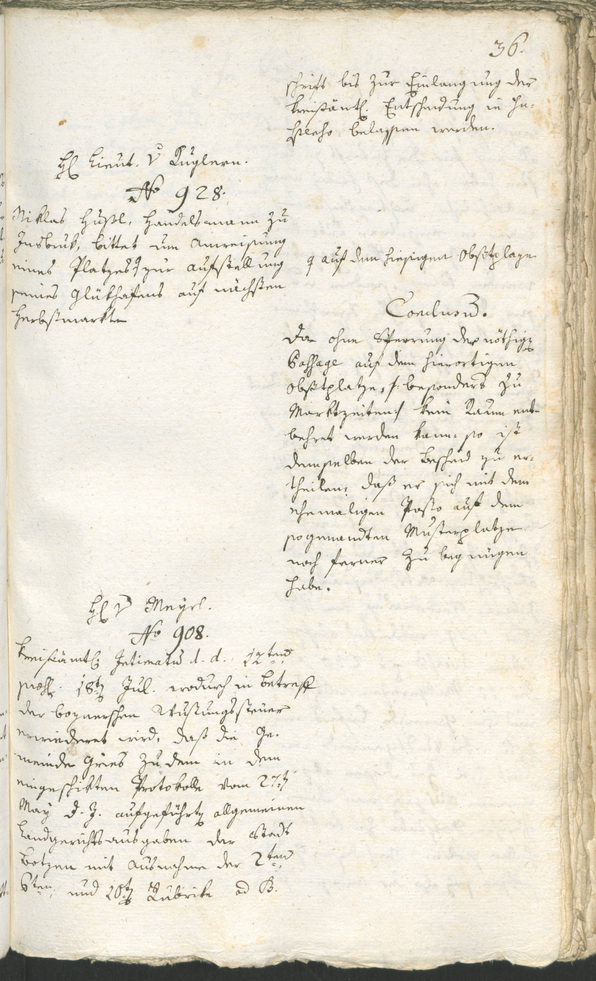 36.
schrift bis zur Einlangung der
kreisämtl. Entscheidung in Su-
spenso belassen werden.
H. Lieut. v. Kuglern.
No 928.
Niklas Hußl, Handelsmann zu
Insbruk, bittet um Anweisung
eines Platzes zur Aufstellung
seines Glükhafens auf nächsten
Herbstmarkte
auf dem hiesigen Obstplaze
Conclusum.
Da ohne Sperrung der nöthigen
Passage auf dem hierortigen
Obstplatze, besonders zu
Marktzeiten kein Raum ent-
behret werden kann, so ist
demselben der Bescheid zu er-
theilen, daß er sich mit dem
ehemaligen Posto auf dem
sogenandten Musterplatze
noch ferner zu begnügen
habe.
H. v. Mayrl.
No 908.
Kreisämtl. Intimatum d. d. 12ten
praes. 18ten Jul. wodurch in Betreff
der boznerschen Rüstungssteuer
erwiederet wird, daß die Ge-
meinde Gries zu dem in dem
eingeschikten Protokolle vom 27ten
May d. J. aufgeführten allgemeinen
Landgerichtsausgaben der Stadt
Botzen mit Ausnahme der 2ten
6ten und 10ten Rubrike ad B.